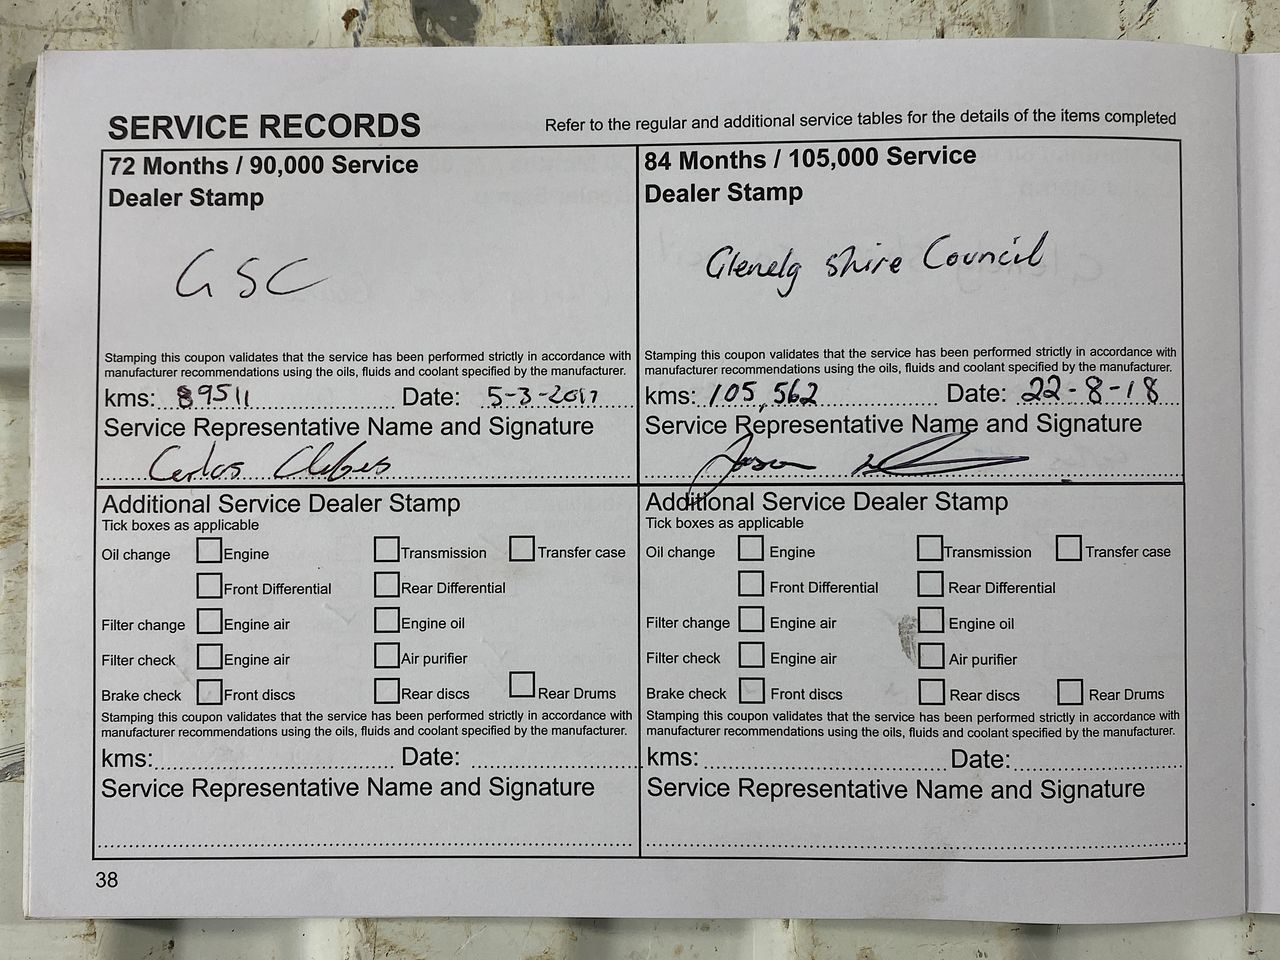 SERVICE RECORDS
Refer to the regular and additional service tables for the details of the items completed
72 Months / 90,000 Service
Dealer Stamp
GSC
Stamping this coupon validates that the service has been performed strictly in accordance with
manufacturer recommendations using the oils, fluids and coolant specified by the manufacturer.
kms: 89511 Date: 5-3-2017
Service Representative Name and Signature
Carlos
Additional Service Dealer Stamp
Tick boxes as applicable
Oil change Engine Transmission Transfer case
Front Differential Rear Differential
Filter change Engine air Engine oil
Filter check Engine air Air purifier
Brake check Front discs Rear discs Rear Drums
Stamping this coupon validates that the service has been performed strictly in accordance with
manufacturer recommendations using the oils, fluids and coolant specified by the manufacturer.
kms: Date:
Service Representative Name and Signature
84 Months / 105,000 Service
Dealer Stamp
Glenelg Shire Council
Stamping this coupon validates that the service has been performed strictly in accordance with
manufacturer recommendations using the oils, fluids and coolant specified by the manufacturer.
kms: 105,562 Date: 22-8-18
Service Representative Name and Signature
Jason
Additional Service Dealer Stamp
Tick boxes as applicable
Oil change Engine Transmission Transfer case
Front Differential Rear Differential
Filter change Engine air Engine oil
Filter check Engine air Air purifier
Brake check Front discs Rear discs Rear Drums
Stamping this coupon validates that the service has been performed strictly in accordance with
manufacturer recommendations using the oils, fluids and coolant specified by the manufacturer.
kms: Date:
Service Representative Name and Signature
38